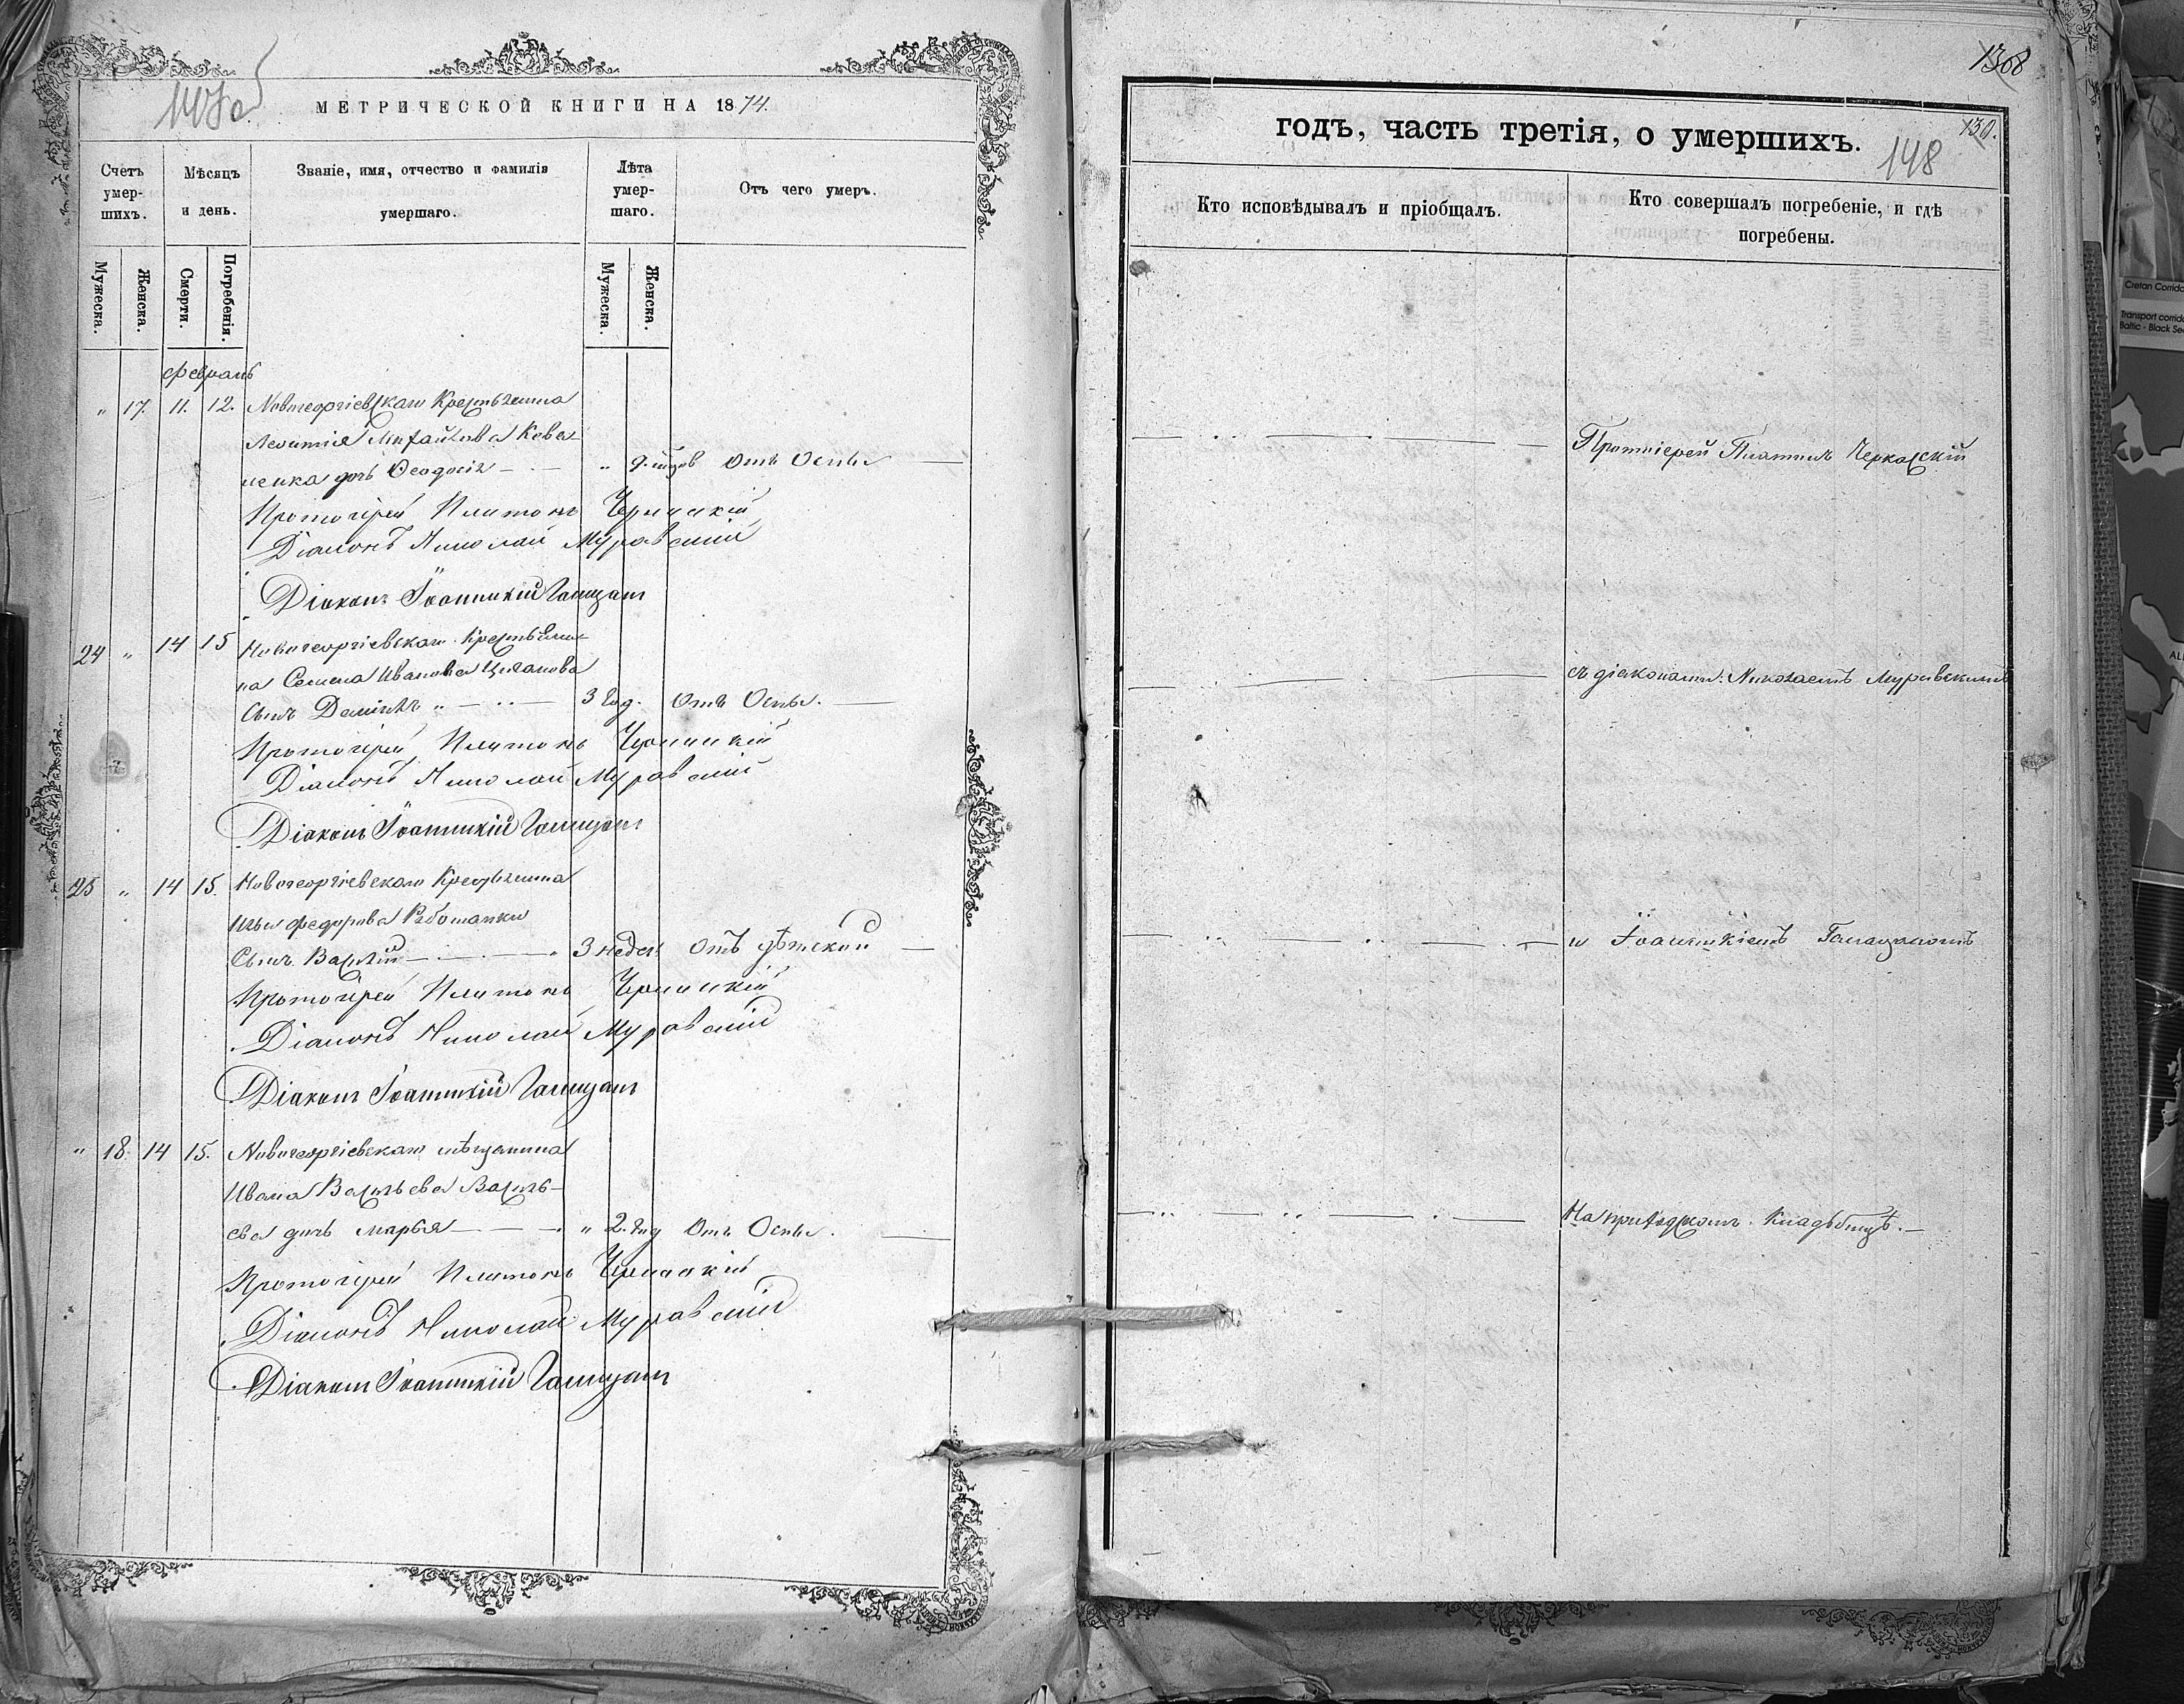 МЕТРИЧЕСКОЙ КНИГИ НА 1874.
Счетъ умер-шихъ.
Мѣсяцъ и день.
Званіе, имя, отчество и фамилія умершаго.
Лѣта умер-шаго.
Отъ чего умеръ.
Мужеска.
Женска.
Смерти.
Погребенія.
Мужеска.
Женска.
февраль
" 17. 11. 12. Новогеоргіевскаго Крестьянина
Леонтія Михайлова
дочь Ѳеодосія " 9. Отъ Оспы
Протоіерей Платонъ Черкаскій
Діаконъ Николай Муравскій
Діаконъ Іоанникій
24 " 14 15 Новогеоргіевскаго Крестьяни-
на Семена Иванова Циганова
Сынъ 3 год. Отъ Оспы.
Протоіерей Платонъ Черкаскій
Діаконъ Николай Муравскій
Діаконъ Іоанникій
25 " 14 15. Новогеоргіевскаго Крестьянина
Ильи Федорова
Сынъ Василій 3 недел. Отъ дѣтской
Протоіерей Платонъ Черкаскій
Діаконъ Николай Муравскій
Діаконъ Іоанникій
" 18. 14 15. Новогеоргіевскаго мѣщанина
Ивана Васильева Василь-
ева дочь Марѳа " 2. год Отъ Оспы.
Протоіерей Платонъ Черкаскій
Діаконъ Николай Муравскій
Діаконъ Іоанникій
130.
148
годъ, часть третія, о умершихъ.
Кто исповѣдывалъ и пріобщалъ.
Кто совершалъ погребеніе, и гдѣ погребены.
Протоіерей Платонъ Черкаскій
съ діаконами: Николаемъ Муравскимъ
и Іоанникіемъ
На приходскомъ кладбищѣ.